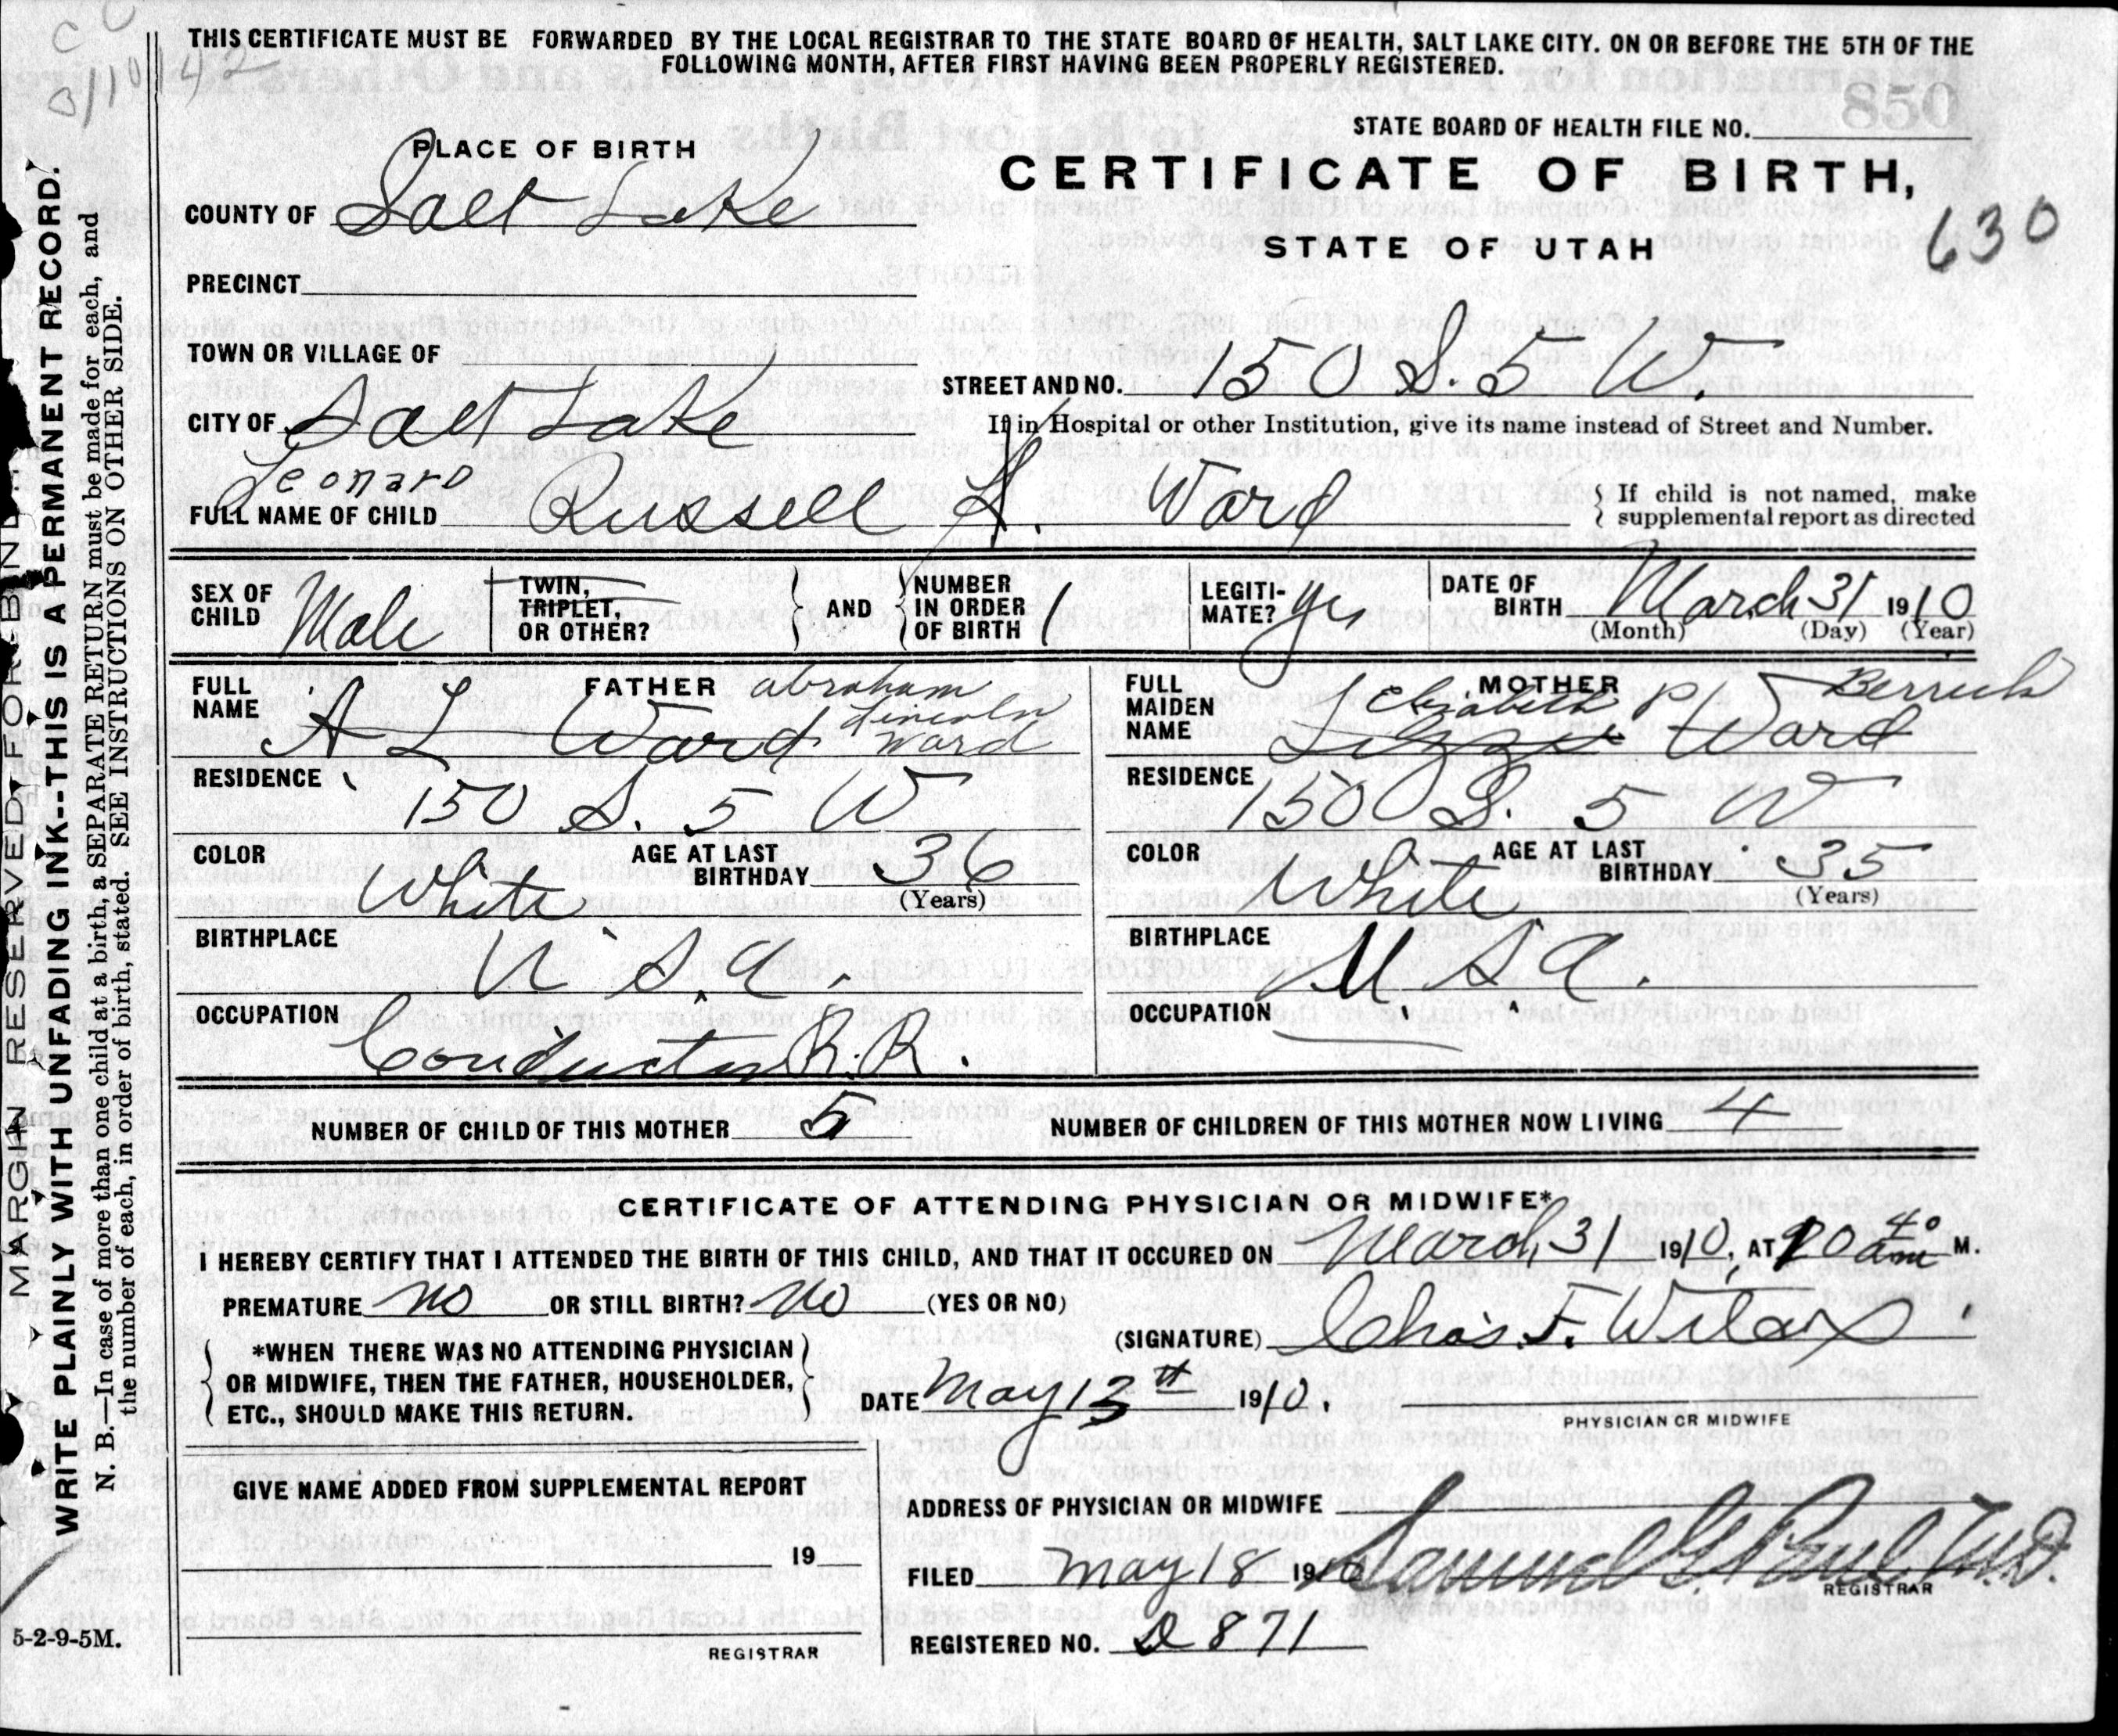 THIS CERTIFICATE MUST BE FORWARDED BY THE LOCAL REGISTRAR TO THE STATE BOARD OF HEALTH, SALT LAKE CITY. ON OR BEFORE THE 5TH OF THE
FOLLOWING MONTH, AFTER FIRST HAVING BEEN PROPERLY REGISTERED.
850
STATE BOARD OF HEALTH FILE NO.
PLACE OF BIRTH
CERTIFICATE OF BIRTH,
STATE OF UTAH
630
COUNTY OF Salt Lake
PRECINCT
TOWN OR VILLAGE OF
STREET AND NO. 150 S. 5 W.
CITY OF Salt Lake
If in Hospital or other Institution, give its name instead of Street and Number.
Leonard
FULL NAME OF CHILD Russell L. Ward
{ If child is not named, make
supplemental report as directed
SEX OF CHILD Male
TWIN, TRIPLET, OR OTHER?
AND
NUMBER IN ORDER OF BIRTH 1
LEGITI-MATE? yes
DATE OF BIRTH March 31 1910
(Month) (Day) (Year)
FATHER
FULL NAME A L Ward Abraham Lincoln Ward
RESIDENCE 150 S. 5 W
COLOR White
AGE AT LAST BIRTHDAY 36
(Years)
BIRTHPLACE U.S.A.
OCCUPATION Conductor R.R.
MOTHER
FULL MAIDEN NAME Lizzie Ward Elizabeth P
RESIDENCE 150 S. 5 W
COLOR White
AGE AT LAST BIRTHDAY 35
(Years)
BIRTHPLACE U.S.A.
OCCUPATION
NUMBER OF CHILD OF THIS MOTHER 5
NUMBER OF CHILDREN OF THIS MOTHER NOW LIVING 4
CERTIFICATE OF ATTENDING PHYSICIAN OR MIDWIFE*
I HEREBY CERTIFY THAT I ATTENDED THE BIRTH OF THIS CHILD, AND THAT IT OCCURED ON March 31 1910, AT 40 am M.
PREMATURE no OR STILL BIRTH? No (YES OR NO)
(SIGNATURE) Chas. F. Wilcox
*WHEN THERE WAS NO ATTENDING PHYSICIAN
OR MIDWIFE, THEN THE FATHER, HOUSEHOLDER,
ETC., SHOULD MAKE THIS RETURN.
DATE May 13th 1910.
PHYSICIAN OR MIDWIFE
GIVE NAME ADDED FROM SUPPLEMENTAL REPORT
19
REGISTRAR
ADDRESS OF PHYSICIAN OR MIDWIFE
FILED May 18 1910 Samuel G. Paul M.D.
REGISTRAR
REGISTERED NO. D 871
MARGIN RESERVED FOR BINDING
WRITE PLAINLY WITH UNFADING INK--THIS IS A PERMANENT RECORD.
N. B.—In case of more than one child at a birth, a SEPARATE RETURN must be made for each, and
the number of each, in order of birth, stated. SEE INSTRUCTIONS ON OTHER SIDE.
5-2-9-5M.